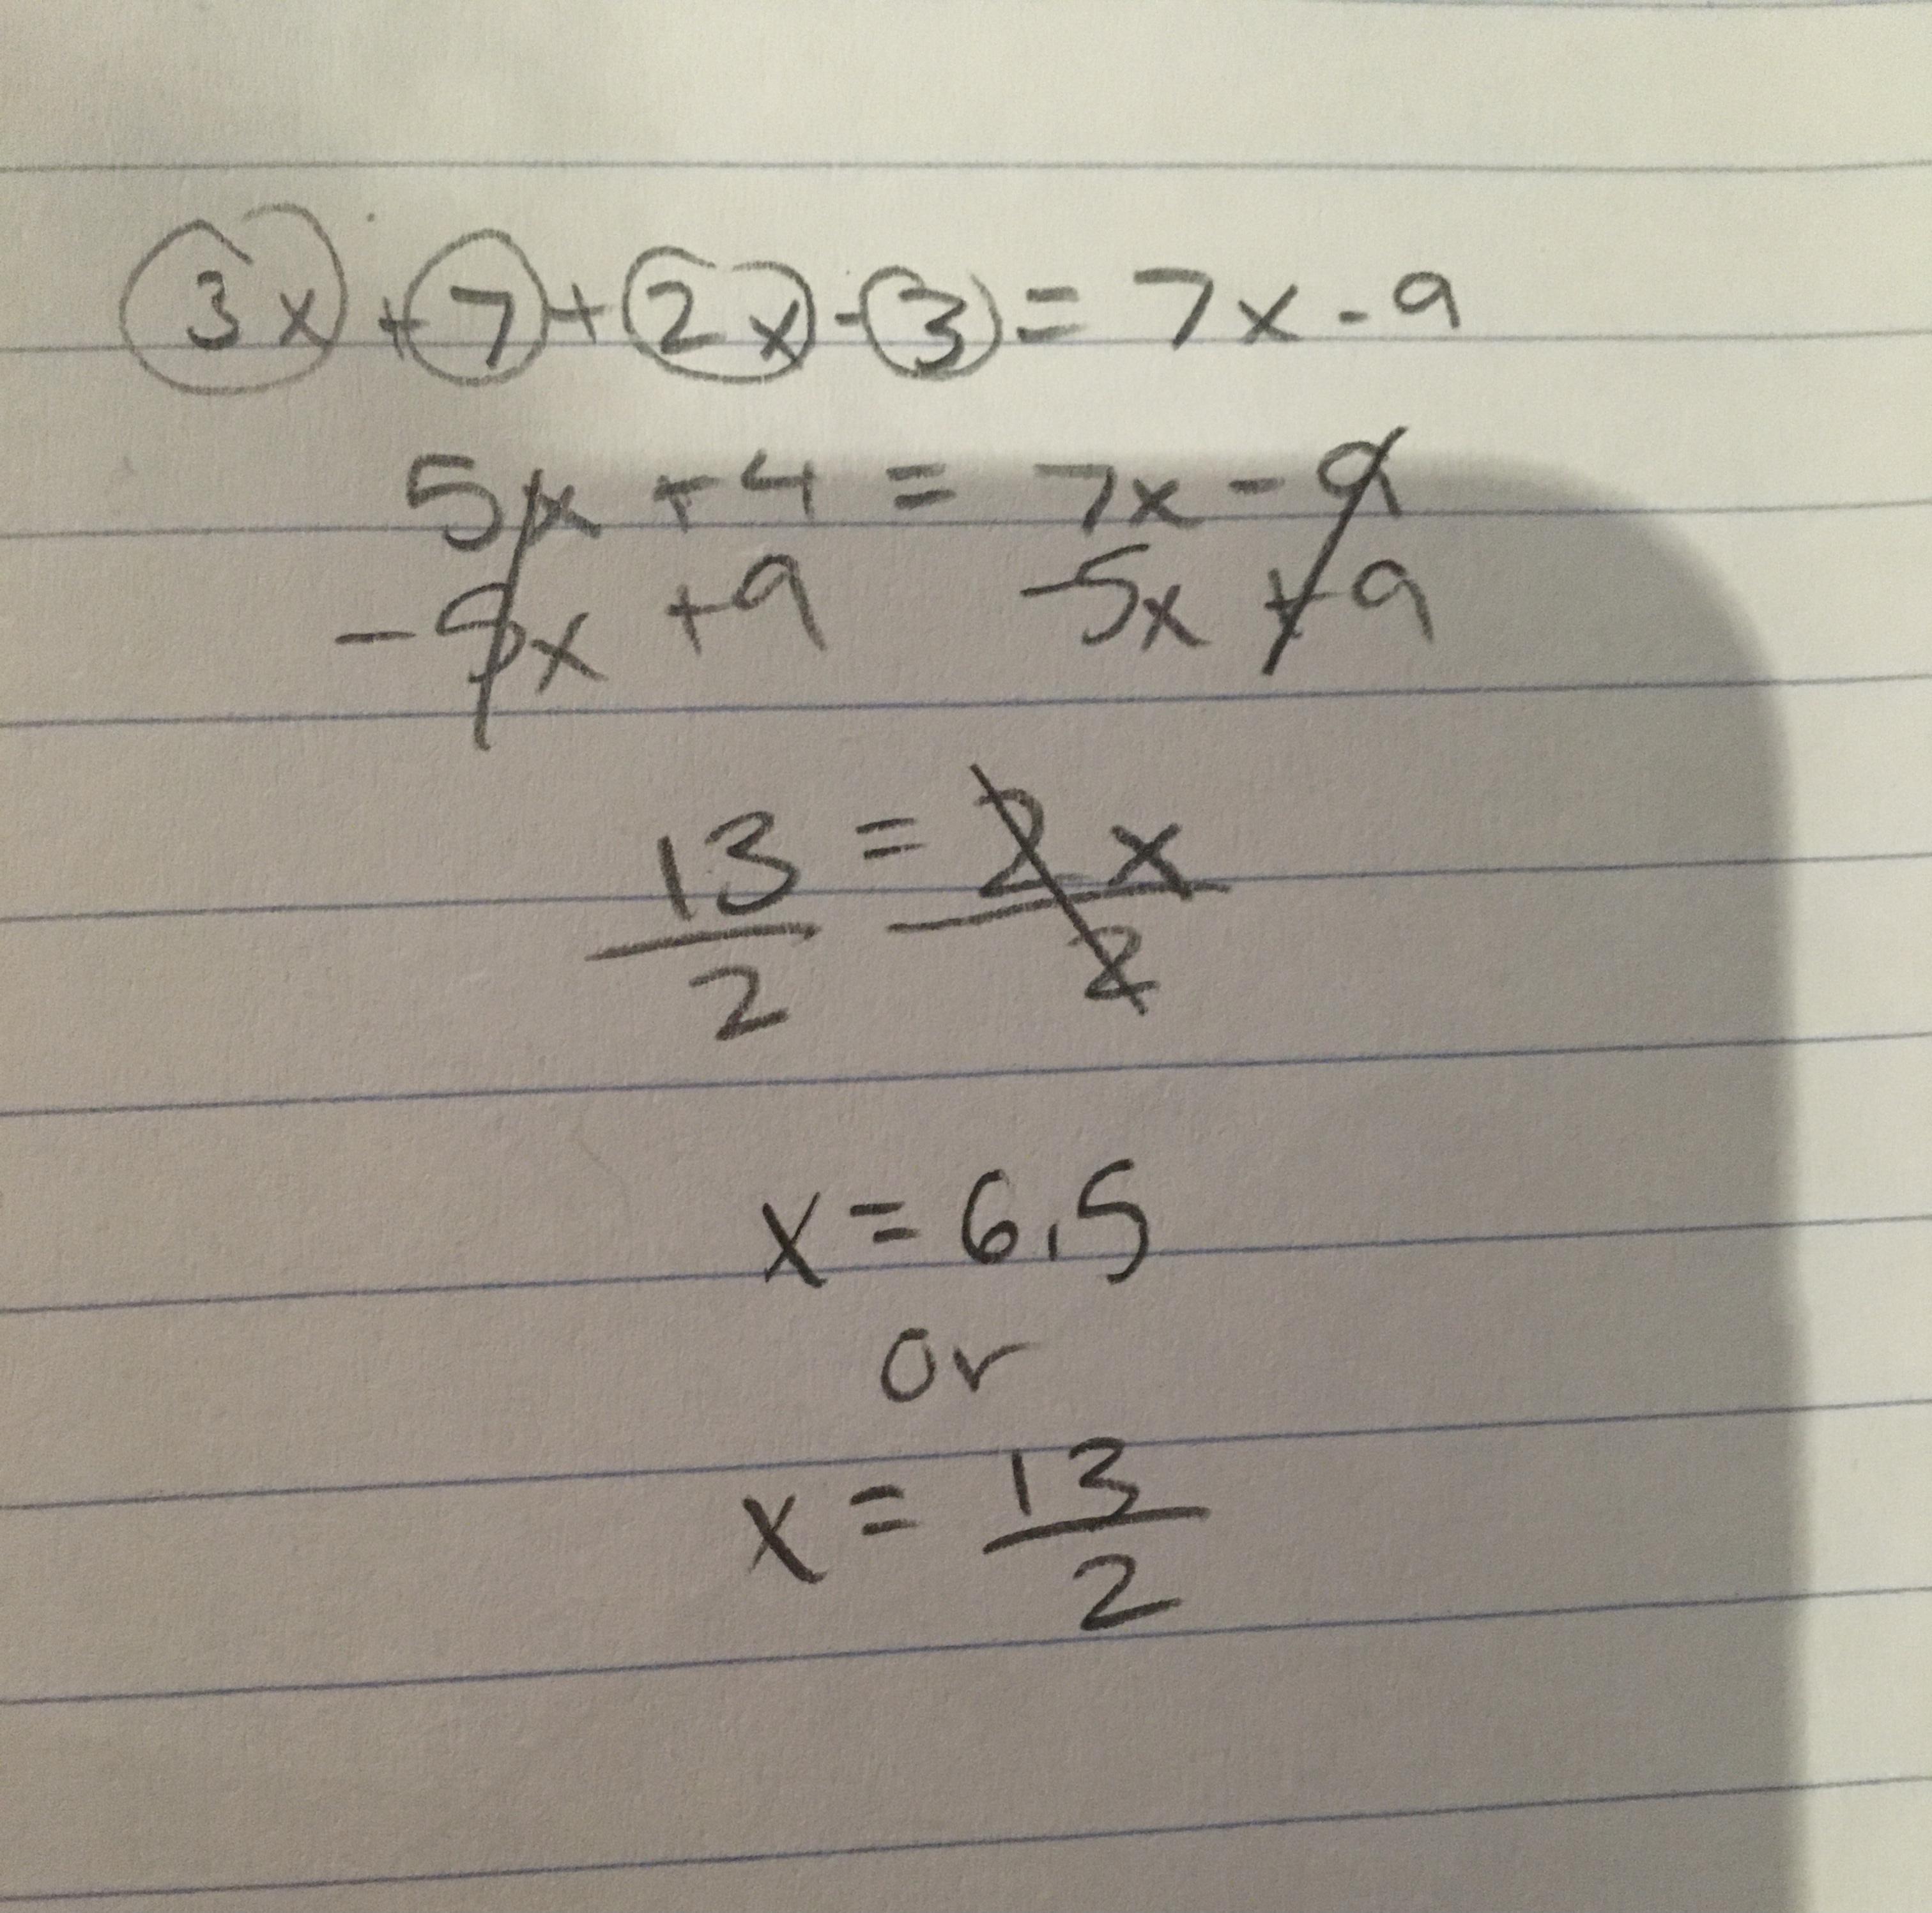 3x + 7 + 2x - 3 = 7x - 9
5x + 4 = 7x - 9
-5x + 9 -5x + 9
13 = 2x
2 2
x = 6.5
or
x = 13
2